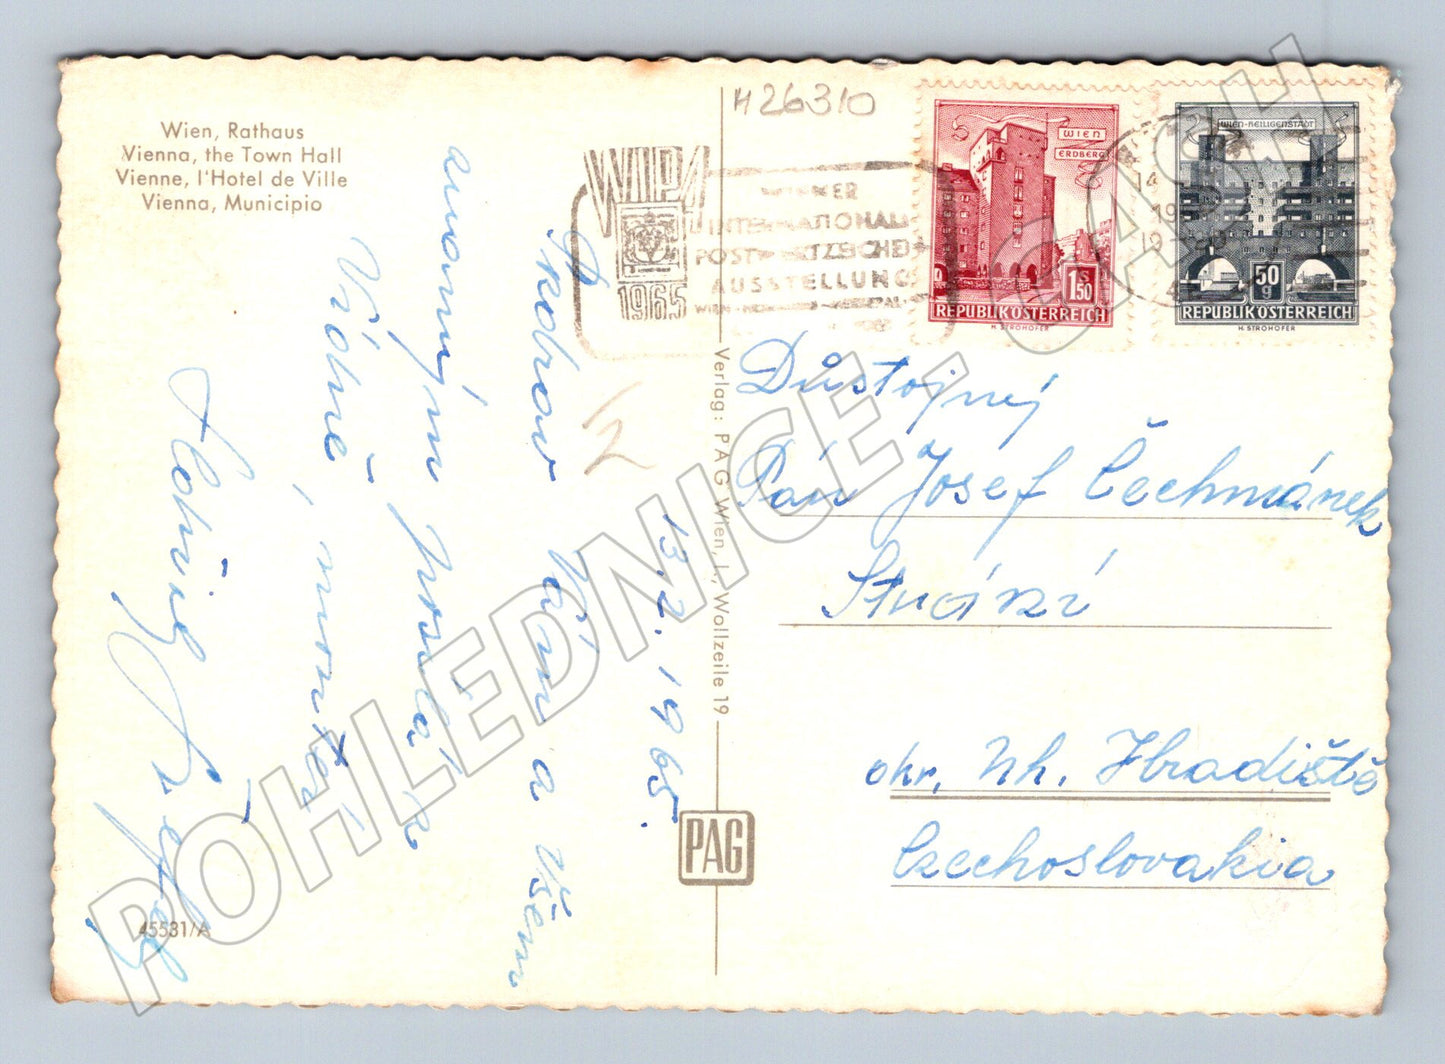 Wien, Rathaus
Vienna, the Town Hall
Vienne, l'Hotel de Ville
Vienna, Municipio
H 26310
WIPA
1965
WIENER
INTERNATIONALE
POSTWERTZEICHEN
AUSSTELLUNG
WIEN
ERDBERG
1S50
REPUBLIK ÖSTERREICH
H. STROHOFER
WIEN-HEILIGENSTADT
50
g
REPUBLIK ÖSTERREICH
H. STROHOFER
13.2.1965.
Vám a Všem
známým posílá z
Vídně
Důstojný
Pán Josef Čechmánek
okr. Uh. Hradiště
Czechoslovakia
Verlag: PAG Wien, I., Wollzeile 19
PAG
45531/A
POHLEDNICE - CASH